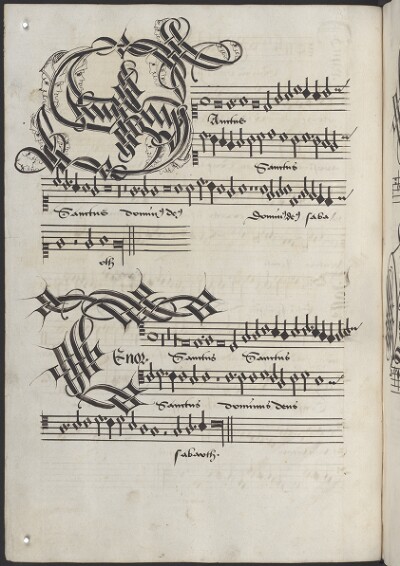 Sanctus
Sanctus
Sanctus dominꝰ deꝰ Dominꝰ deꝰ saba
oth
Tenor. Sanctus Sanctus
Sanctus dominus deus
sabaoth.